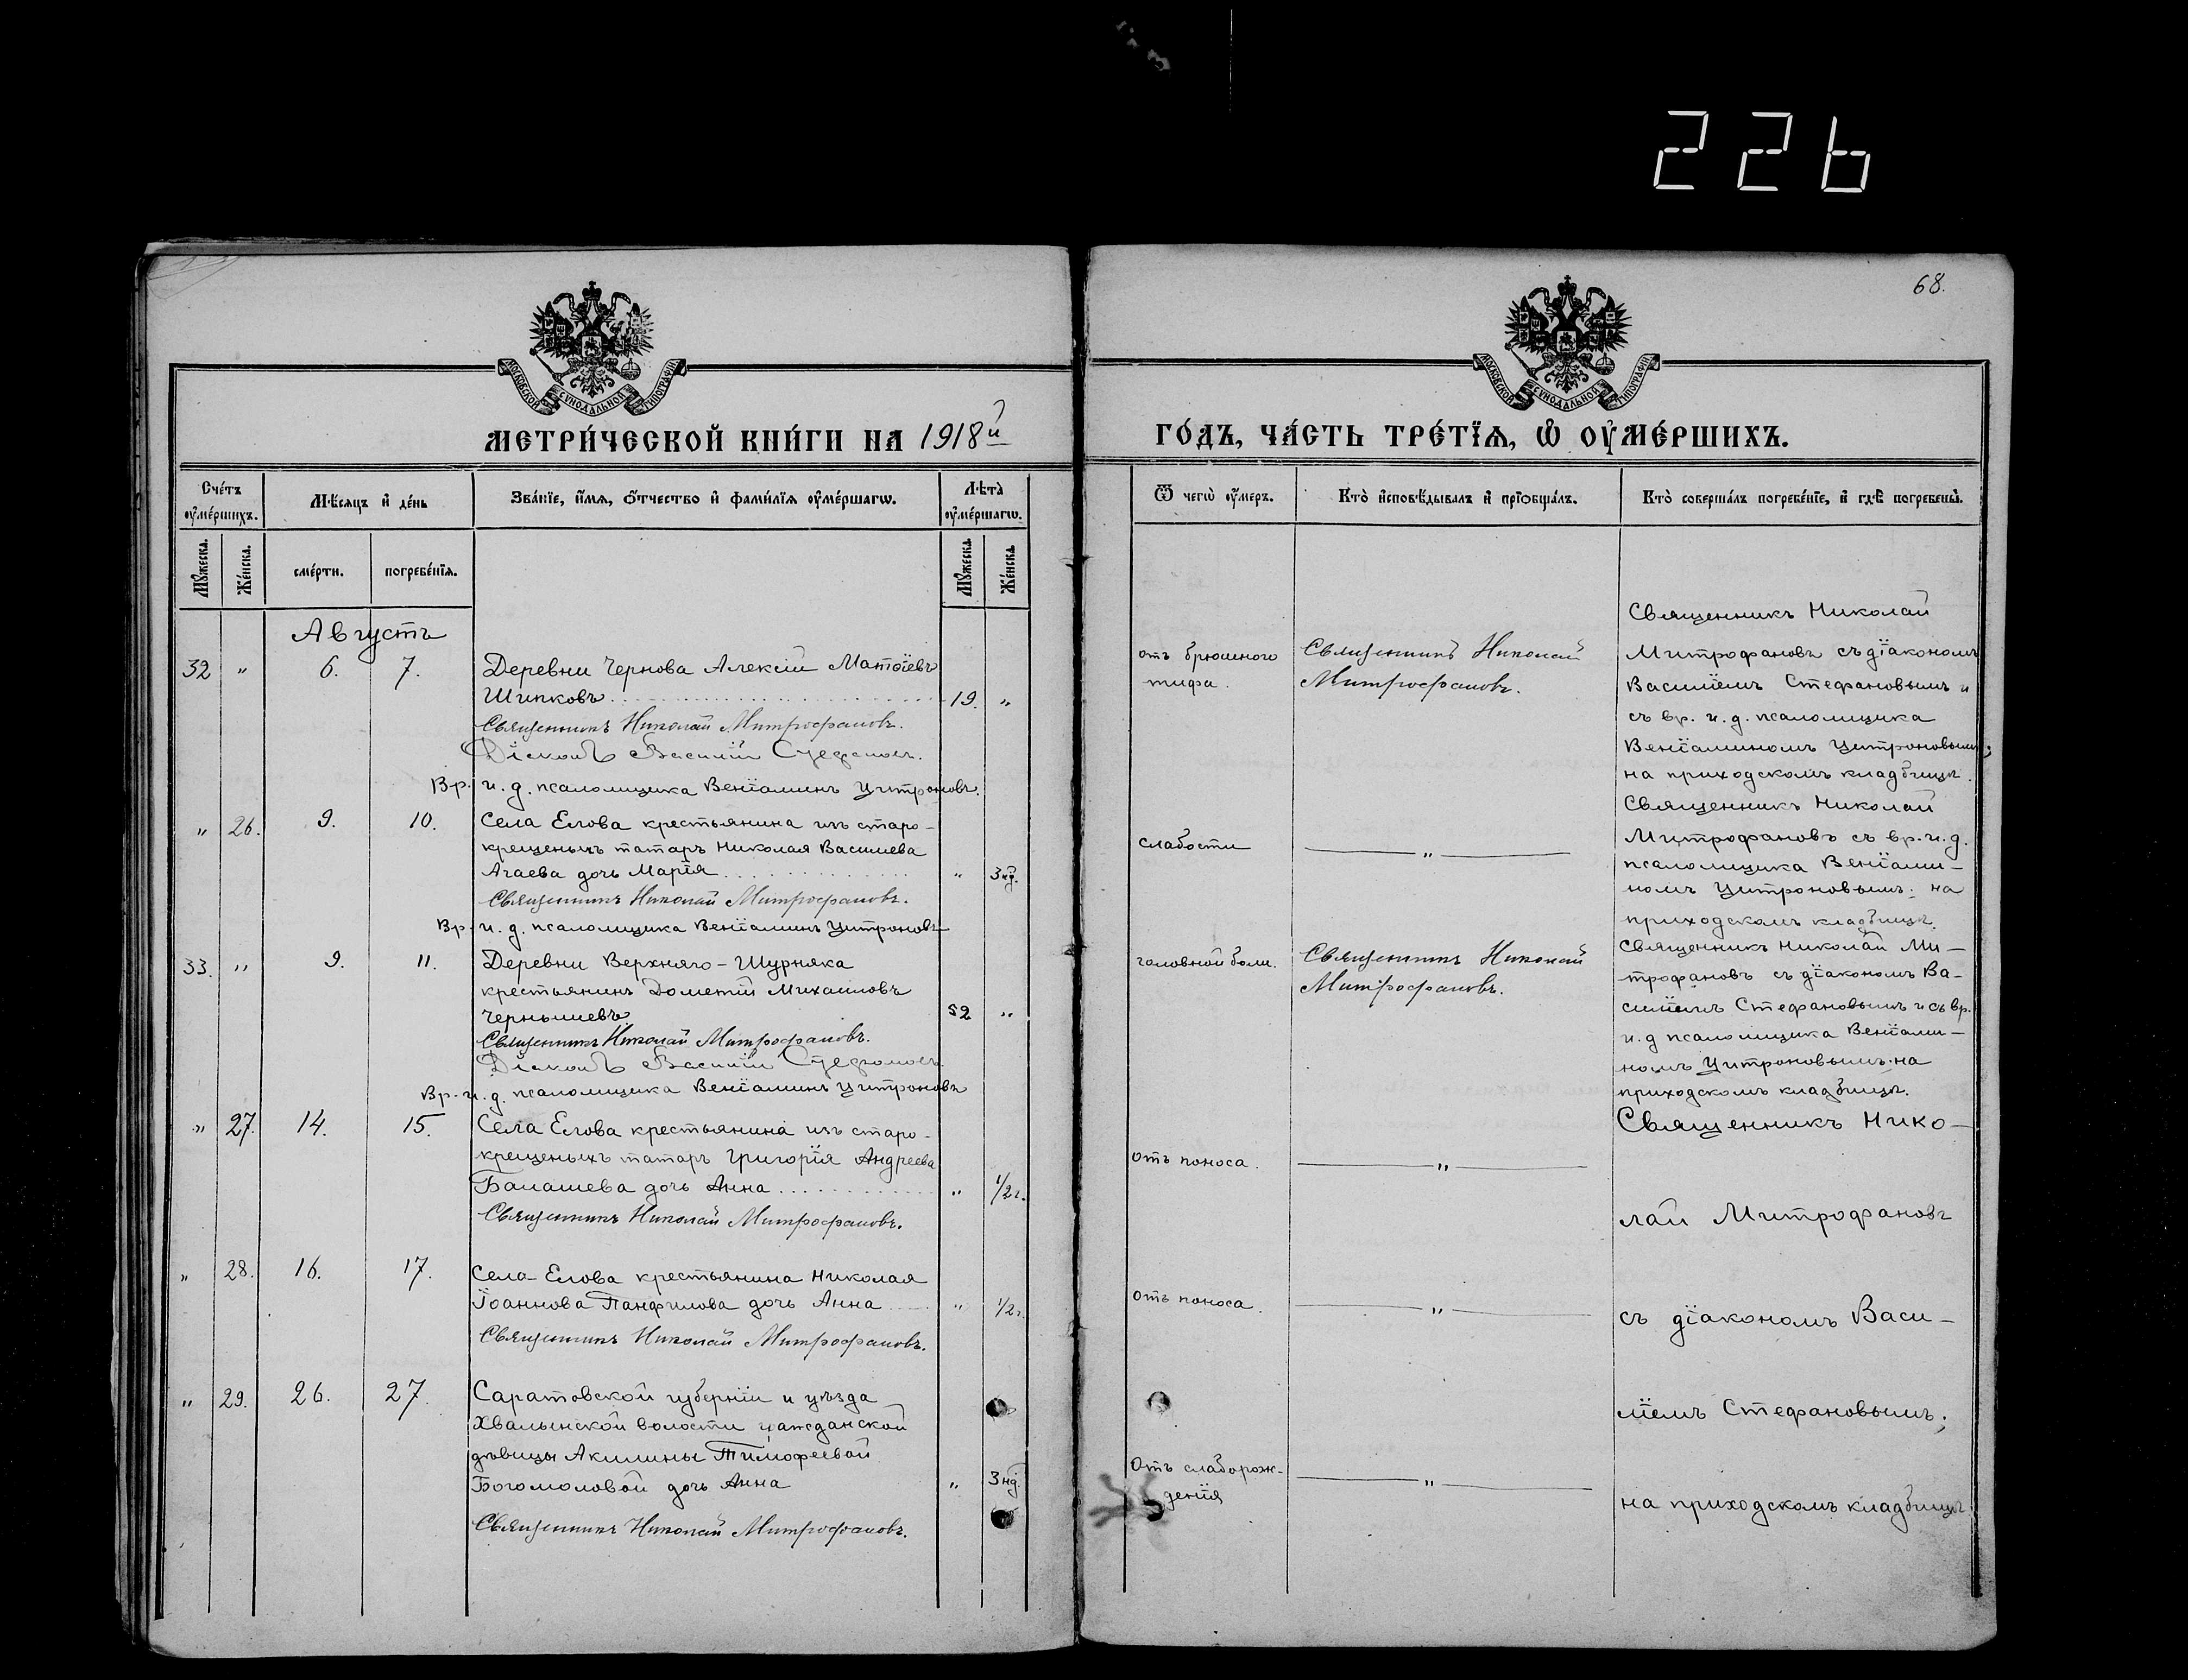 226
68.
МОСКОВСКОЙ СУНОДАЛЬНОЙ ТИПОГРАФІИ
МОСКОВСКОЙ СУНОДАЛЬНОЙ ТИПОГРАФІИ
МЕТРИ́ЧЕСКОЙ КНИ́ГИ НА 1918й
ГО́ДЪ, ЧА́СТЬ ТРЕ́ТІѦ, Ѽ ОУМЕ́РШИХЪ.
Сче́тъ оумершихъ.
Мѣсяцъ и де́нь
Зва́ніе, и́мя, о́тчество и фами́лія оуме́ршагѡ.
Лѣта̀ оуме́ршагѡ.
Ѿ чегѡ̀ оу́меръ.
Кто̀ исповѣ́дывалъ и пріобща́лъ.
Кто̀ соверша́лъ погребе́ніе, и гдѣ̀ погребены̀.
Мꙋжеска.
Же́нска.
сме́рти.
погребе́нія.
Мꙋжеска.
Же́нска.
Августъ
32 " 6. 7. Деревни Чернова Алексій Матѳіевъ
Шипковъ 19. "
Священникъ Николай Митрофановъ.
Діаконъ Василій Стефановъ.
Вр. и. д. псаломщика Веніаминъ Цитроновъ.
отъ брюшного
тифа.
Священникъ Николай
Митрофановъ.
Священникъ Николай
Митрофановъ съ діакономъ
Василіемъ Стефановымъ и
съ вр. и. д. псаломщика
Веніаминомъ Цитроновымъ;
на приходскомъ кладбищѣ.
" 26. 9. 10. Села Елова крестьянина изъ старо-
крещеныхъ татаръ Николая Василиева
Агаева дочь Марія " 3 нд.
Священникъ Николай Митрофановъ.
Вр. и. д. псаломщика Веніаминъ Цитроновъ
слабости
— " —
Священникъ Николай
Митрофановъ съ вр. и. д.
псаломщика Веніами-
номъ Цитроновымъ; на
приходскомъ кладбищѣ.
33. " 9. 11. Деревни Верхняго-Шурняка
крестьянинъ Дометій Михаиловъ
Чернышевъ 52 "
Священникъ Николай Митрофановъ.
Діаконъ Василій Стефановъ.
Вр. и. д. псаломщика Веніаминъ Цитроновъ
головной боли.
Священникъ Николай
Митрофановъ.
Священникъ Николай Ми-
трофановъ съ діакономъ Ва-
силіемъ Стефановымъ и съ вр.
и. д псаломщика Веніами-
номъ Цитроновымъ; на
приходскомъ кладбищѣ.
" 27. 14. 15. Села Елова крестьянина изъ старо-
крещеныхъ татаръ Григорія Андреева
Балашева дочь Анна " 1/2 г.
Священникъ Николай Митрофановъ.
отъ поноса.
— " —
Священникъ Нико-
лай Митрофановъ
" 28. 16. 17. Села Елова крестьянина Николая
Іоаннова Панфилова дочь Анна " 1/2 г.
Священникъ Николай Митрофановъ.
отъ поноса.
— " —
съ діакономъ Васи-
" 29. 26. 27. Саратовской губерніи и уѣзда
Хвалынской волости гражданской
дѣвицы Акилины Тимофеевой
Богомоловой дочь Анна " 3 нд.
Священникъ Николай Митрофановъ.
Отъ слаборож-
денія
— " —
ліемъ Стефановымъ;
на приходскомъ кладбищѣ.